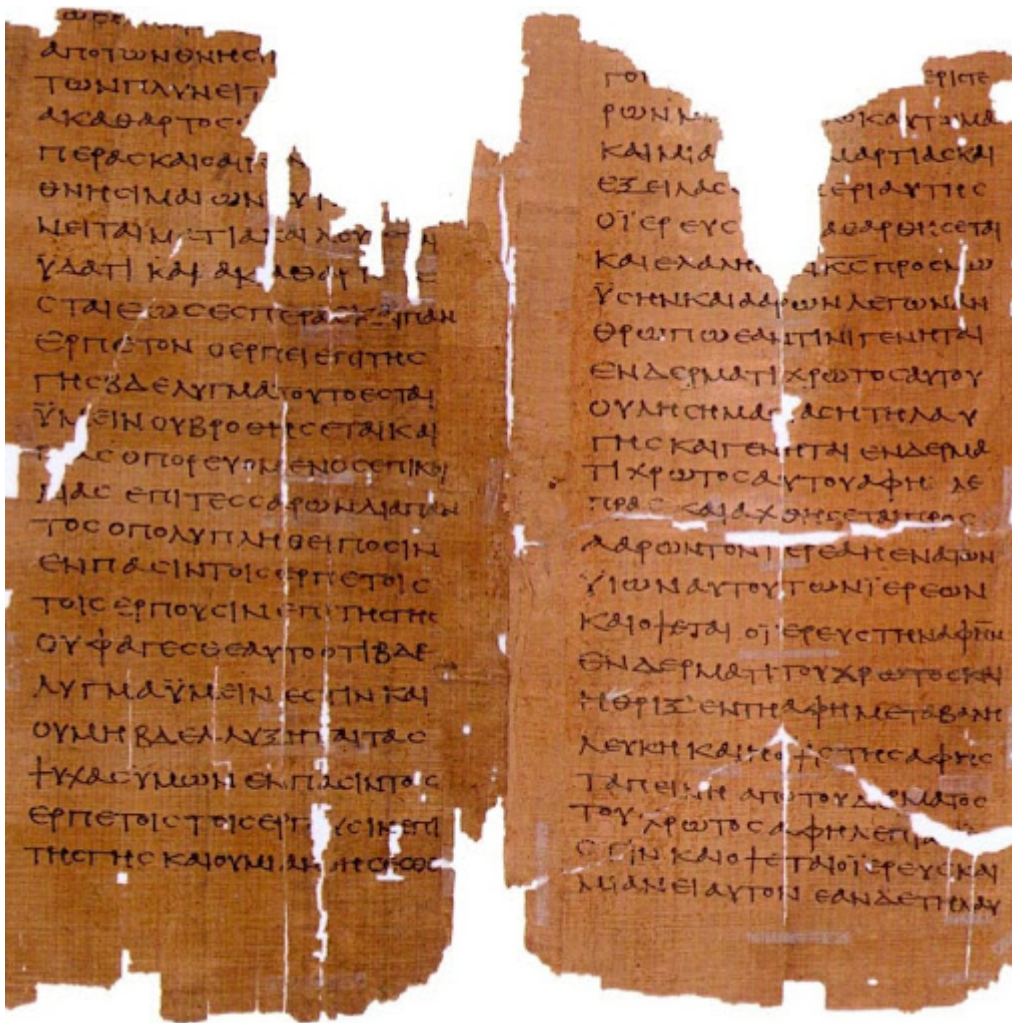 ΑΠΟ ΤΩΝ ΘΝΗΣΙ
ΤΩΝ ΠΛΥΝΕΙ Τ
ΑΚΑΘΑΡΤΟΣ
ΠΕΡΑΣ ΚΑΙ Ο ΑΙΡ
ΘΝΗΣΙΜΑΙΩΝ
ΝΕΙ ΤΑ ΙΜΑΤΙΑ ΚΑΙ ΛΟΥ
ΫΔΑΤΙ ΚΑΙ ΑΚΑΘΑΡ Ε
ΣΤΑΙ ΕΩΣ ΕΣΠΕΡΑΣ ΚΑΙ ΠΑΝ
ΕΡΠΕΤΟΝ Ο ΕΡΠΕΙ ΕΠΙ ΤΗΣ
ΓΗΣ ΒΔΕΛΥΓΜΑ ΤΟΥΤΟ ΕΣΤΑΙ
ΫΜΕΙΝ ΟΥ ΒΡΩΘΗΣΕΤΑΙ ΚΑΙ
ΑΣ Ο ΠΟΡΕΥΟΜΕΝΟΣ ΕΠΙ ΚΟΙ
ΛΙΑΣ ΕΠΙ ΤΕΣΣΑΡΩΝ ΔΙΑ ΠΑΝ
ΤΟΣ Ο ΠΟΛΥΠΛΗΘΕΙ ΠΟΣΙΝ
ΕΝ ΠΑΣΙΝ ΤΟΙΣ ΕΡΠΕΤΟΙΣ
ΤΟΙΣ ΕΡΠΟΥΣΙΝ ΕΠΙ ΤΗΣ ΓΗΣ
ΟΥ ΦΑΓΕΣΘΕ ΑΥΤΟ ΟΤΙ ΒΔΕ
ΛΥΓΜΑ ΫΜΕΙΝ ΕΣΤΙΝ ΚΑΙ
ΟΥ ΜΗ ΒΔΕΛΛΥΞΗΤΑΙ ΤΑΣ
ΨΥΧΑΣ ΥΜΩΝ ΕΝ ΠΑΣΙΝ ΤΟΙΣ
ΕΡΠΕΤΟΙΣ ΤΟΙΣ ΕΡΠΟΥΣΙΝ ΕΠΙ
ΤΗΣ ΓΗΣ ΚΑΙ ΟΥ ΜΙΑΝΘΗΣΕΣΘΕ
ΓΟΙ ΕΡΙΣΤΕ
ΡΩΝ Κ ΑΥΤΩΜΑ
ΚΑΙ ΜΙΑ ΜΑΡΤΙΑΣ ΚΑΙ
ΕΞΕΙΛΑΣ ΕΡΙ ΑΥΤΗΣ
Ο ΪΕΡΕΥΣ ΑΘΑΡΘΗΣΕΤΑΙ
ΚΑΙ ΕΛΑΛΗ Κ̅Σ̅ ΠΡΟΣ ΜΩ
ΫΣΗΝ ΚΑΙ ΑΑΡΩΝ ΛΕΓΩΝ ΑΝ
ΘΡΩΠΩ ΕΑΝ ΤΙΝΙ ΓΕΝΗΤΑΙ
ΕΝ ΔΕΡΜΑΤΙ ΧΡΩΤΟΣ ΑΥΤΟΥ
ΟΥΛΗ ΣΗΜΑΣΙΑΣ Η ΤΗΛΑΥ
ΓΗΣ ΚΑΙ ΓΕΝΗΤΑΙ ΕΝ ΔΕΡΜΑ
ΤΙ ΧΡΩΤΟΣ ΑΥΤΟΥ ΑΦΗ ΛΕ
ΠΡΑΣ ΚΑΙ ΑΧΘΗΣΕΤΑΙ ΠΡΟΣ
ΑΑΡΩΝ ΤΟΝ ΪΕΡΕΑ Η ΕΝΑ ΤΩΝ
ΫΙΩΝ ΑΥΤΟΥ ΤΩΝ ΪΕΡΕΩΝ
ΚΑΙ ΟΨΕΤΑΙ Ο ΪΕΡΕΥΣ ΤΗΝ ΑΦΗΝ
ΕΝ ΔΕΡΜΑΤΙ ΤΟΥ ΧΡΩΤΟΣ ΚΑΙ
Η ΘΡΙΞ ΕΝ ΤΗ ΑΦΗ ΜΕΤΑΒΑΛΗ
ΛΕΥΚΗ ΚΑΙ Η ΟΨΙΣ ΤΗΣ ΑΦΗΣ
ΤΑΠΕΙΝΗ ΑΠΟ ΤΟΥ ΔΕΡΜΑΤΟΣ
ΤΟΥ ΧΡΩΤΟΣ ΑΦΗ ΛΕΠΡΑ
ΣΤΙΝ ΚΑΙ ΟΨΕΤΑΙ Ο ΪΕΡΕΥΣ ΚΑΙ
ΜΙΑΝΕΙ ΑΥΤΟΝ ΕΑΝ ΔΕ ΤΗΛΑΥ